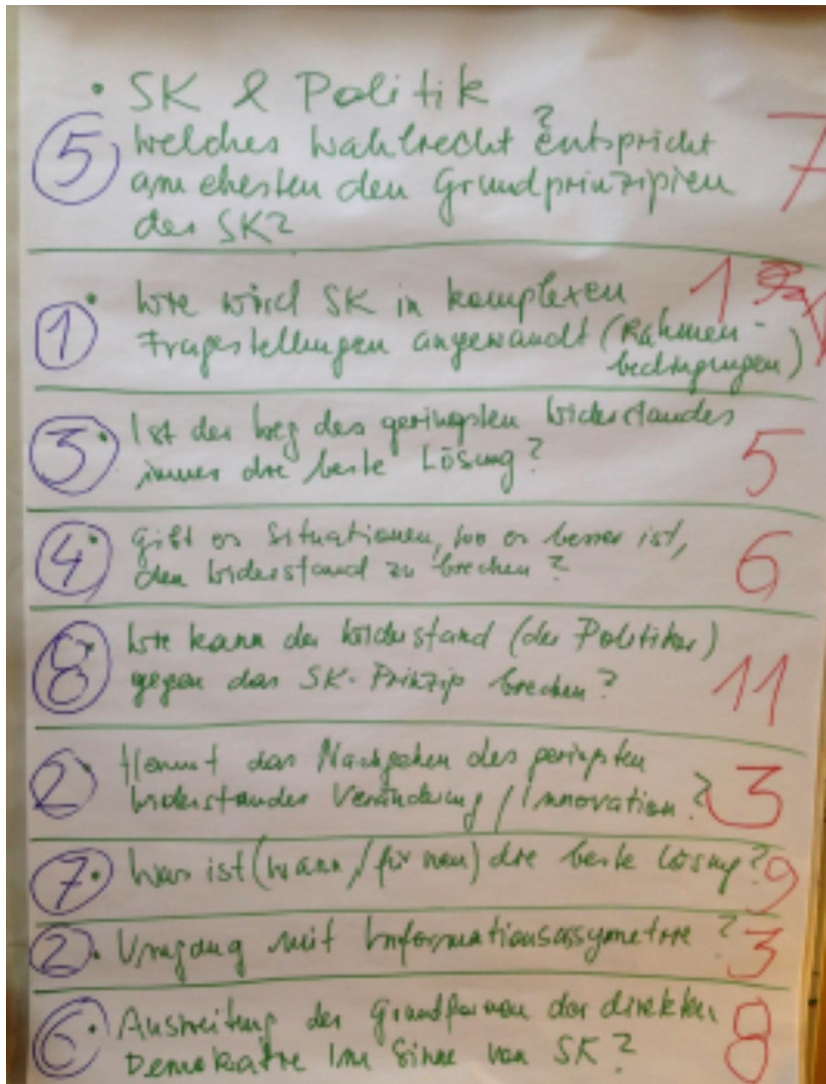 • SK & Politik
5 Welches Wahlrecht ? entspricht 7
am ehesten den Grundprinzipien
der SK?
1 • Wie wird SK in komplexen 1
Fragestellungen angewandt (Rahmen-
bedingungen)
3 • Ist der Weg des geringsten Widerstandes
immer die beste Lösung? 5
4 • Gibt es Situationen, wo es besser ist,
den Widerstand zu brechen? 6
8 • Wie kann der Widerstand (der Politiker)
gegen das SK-Prinzip brechen? 11
2 • Hemmt das Nachgehen des geringsten
Widerstandes Veränderung / Innovation? 3
7 • Was ist (wann / für wen) die beste Lösung? 9
2 • Umgang mit Informationsassymetrie? 3
6 • der Grundformen der direkten
Demokratie im Sinne von SK? 8